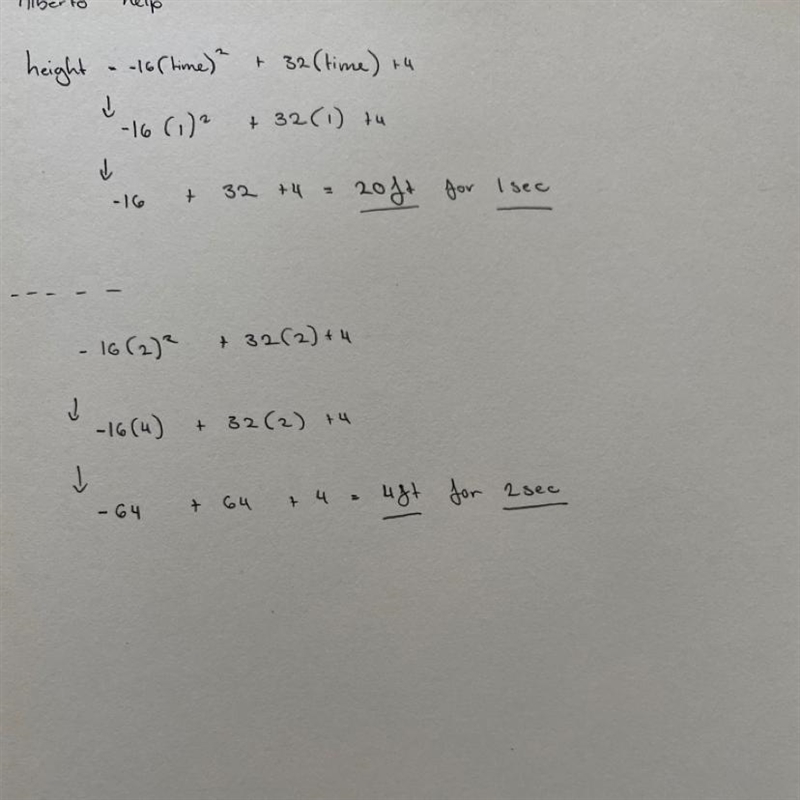 Alberto help
height = -16(time)² + 32(time) +4
↓
-16 (1)² + 32(1) +4
↓
-16 + 32 +4 = 20ft for 1sec
- - - - -
- 16(2)² + 32(2) +4
↓
-16(4) + 32(2) +4
↓
-64 + 64 + 4 = 4ft for 2sec